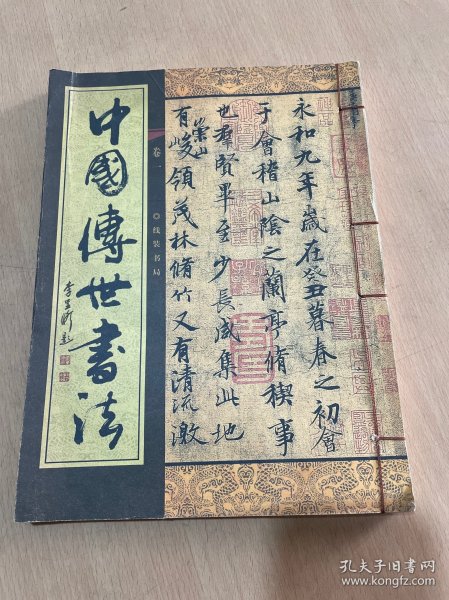 中國傳世書法
李鐸題
卷一
◎线装书局
永和九年歲在癸丑暮春之初會
于會稽山陰之蘭亭脩稧事
也羣賢畢至少長咸集此地
有崇山峻領茂林脩竹又有清流激
孔夫子旧书网
www.kongfz.com